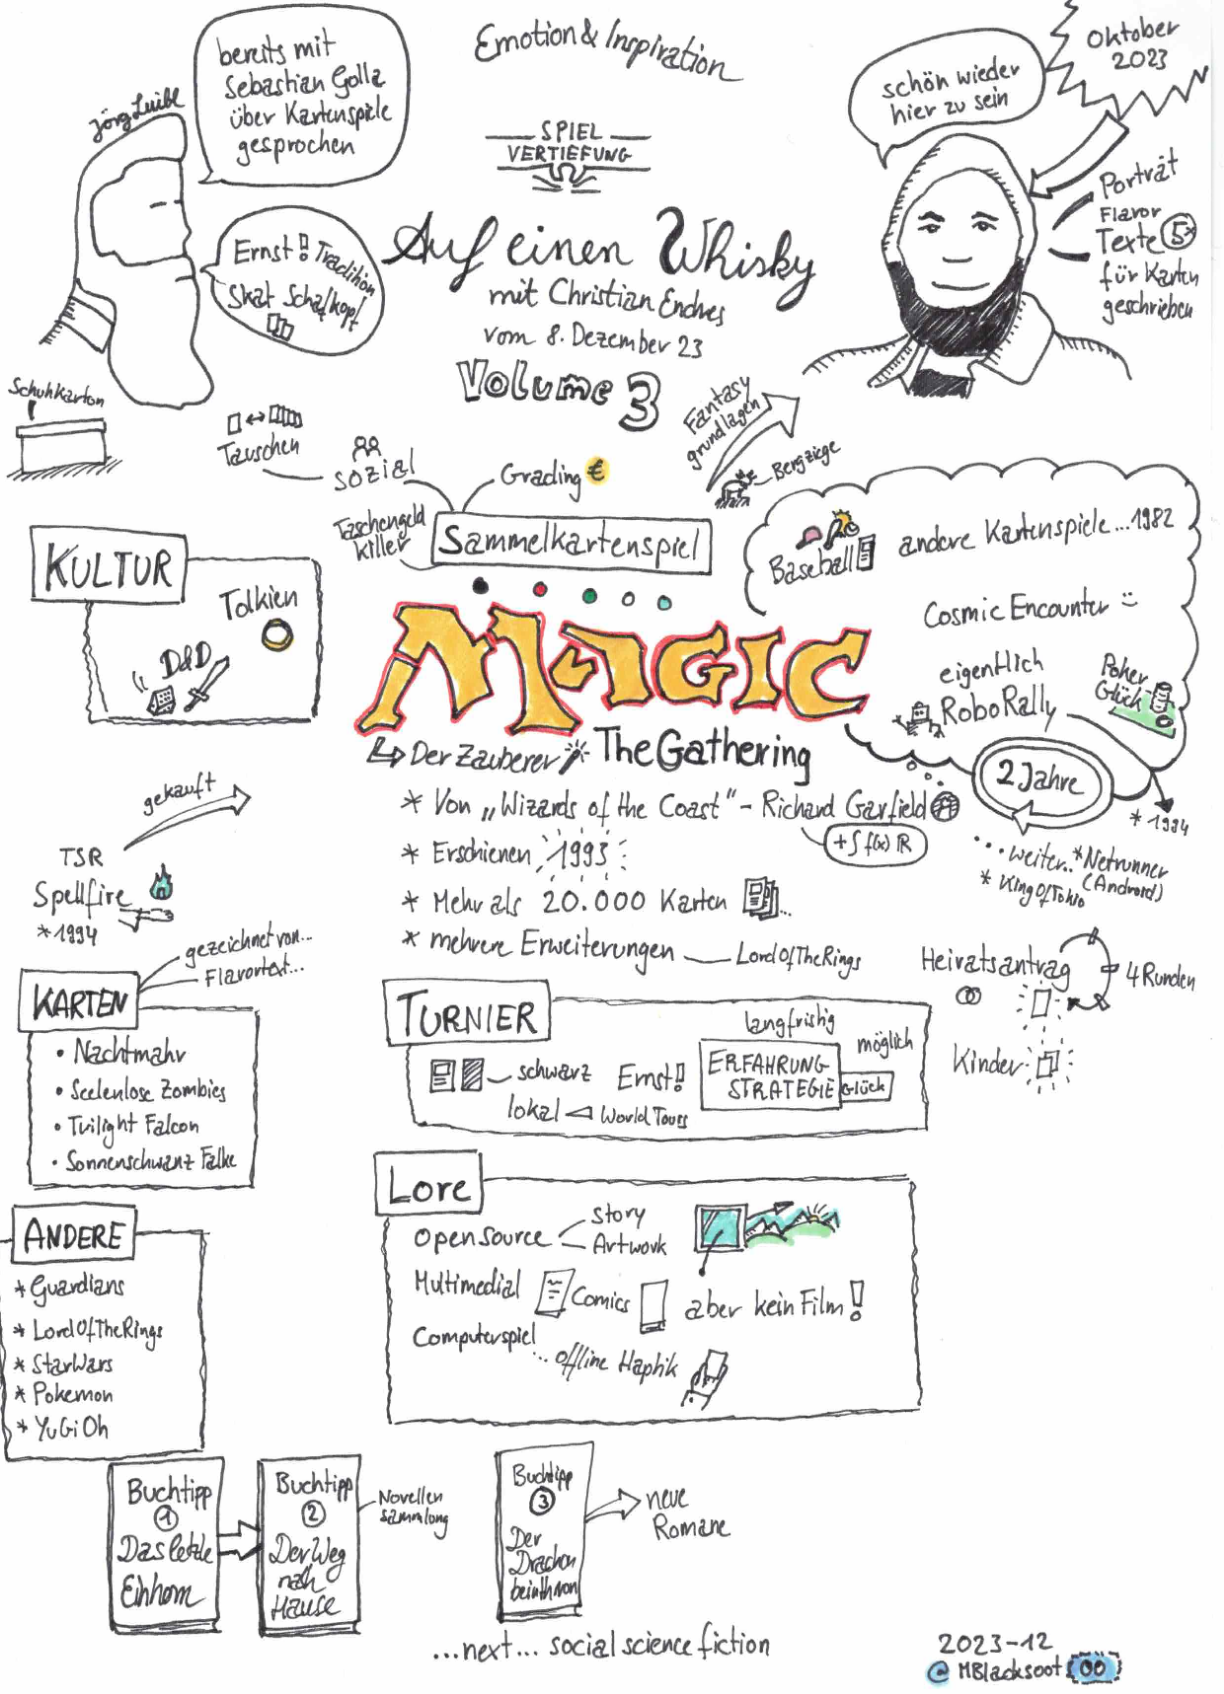 Emotion & Inspiration
SPIEL
VERTIEFUNG
Auf einen Whisky
mit Christian Endres
vom 8. Dezember 23
Volume 3
Jörg Luibl
bereits mit
Sebastian Golla
über Kartenspiele
gesprochen
Ernst! Tradition
Skat Schafkopf
schön wieder
hier zu sein
Oktober
2023
Porträt
Flavor
Texte 5x
für Karten
geschrieben
Schuhkarton
Tauschen
sozial
Grading €
Taschengeld
killer
Sammelkartenspiel
Fantasy
grundlagen
Bergziege
KULTUR
Tolkien
D&D
MAGIC
The Gathering
Der Zauberer
* Von „Wizards of the Coast" - Richard Garfield
+∫ f(x) ℝ
* Erschienen 1993
* Mehr als 20.000 Karten ...
* mehrere Erweiterungen — LordOfTheRings
Baseball
andere Kartenspiele ... 1982
Cosmic Encounter
eigentlich
RoboRally
Poker
Glück
2 Jahre
* 1994
... weiter.. * Netrunner
(Android)
* KingOfTokio
gekauft
TSR
Spellfire
* 1994
gezeichnet von...
Flavortext...
KARTEN
• Nachtmahr
• Seelenlose Zombies
• Tvilight Falcon
• Sonnenschwanz Falke
TURNIER
schwarz
Ernst!
lokal
World Tours
langfristig
möglich
ERFAHRUNG
STRATEGIE
Glück
Heiratsantrag
4 Runden
Kinder
ANDERE
* Guardians
* LordOfTheRings
* StarWars
* Pokemon
* YuGiOh
Lore
OpenSource
Story
Artwork
Multimedial
Comics
aber kein Film!
Computerspiel
... offline Haptik
Buchtipp
1
Das letzte
Einhorn
Buchtipp
2
Der Weg
nach
Hause
Novellen
sammlung
Buchtipp
3
Der
Drachen
beinthron
neue
Romane
...next... social science fiction
2023-12
@MBlacksoot